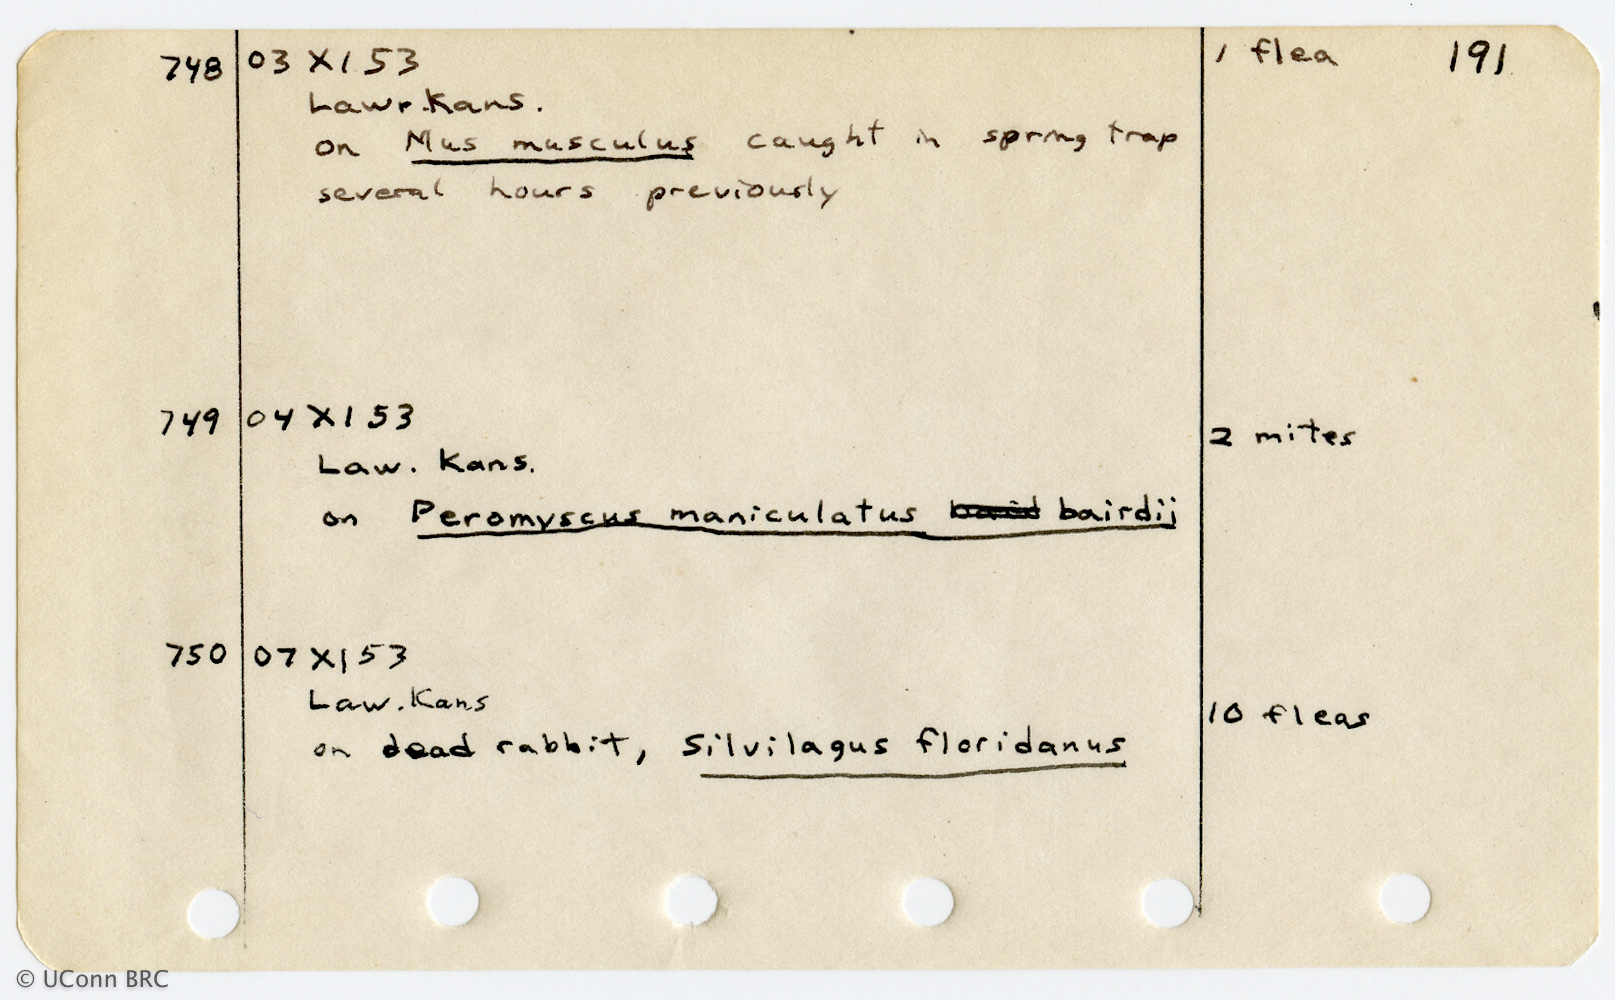 748 03 XI 53 1 flea 191
Lawr. Kans.
on Mus musculus caught in spring trap
several hours previously
749 04 XI 53 2 mites
Law. Kans.
on Peromyscus maniculatus baird bairdij
750 07 XI 53
Law. Kans 10 fleas
on dead rabbit, Silvilagus floridanus
© UConn BRC